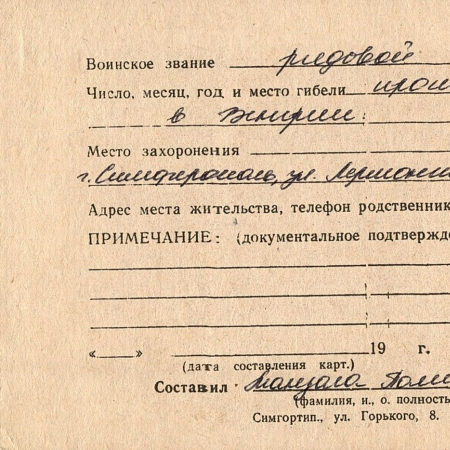 Воинское звание рядовой
Число, месяц, год и место гибели
в
Место захоронения
г. Симферополь, ул.
Адрес места жительства, телефон родственник
ПРИМЕЧАНИЕ: (документальное подтвержде
« » 19 г.
(дата составления карт.)
Составил
(фамилия, и., о. полность
Симгортип., ул. Горького, 8.